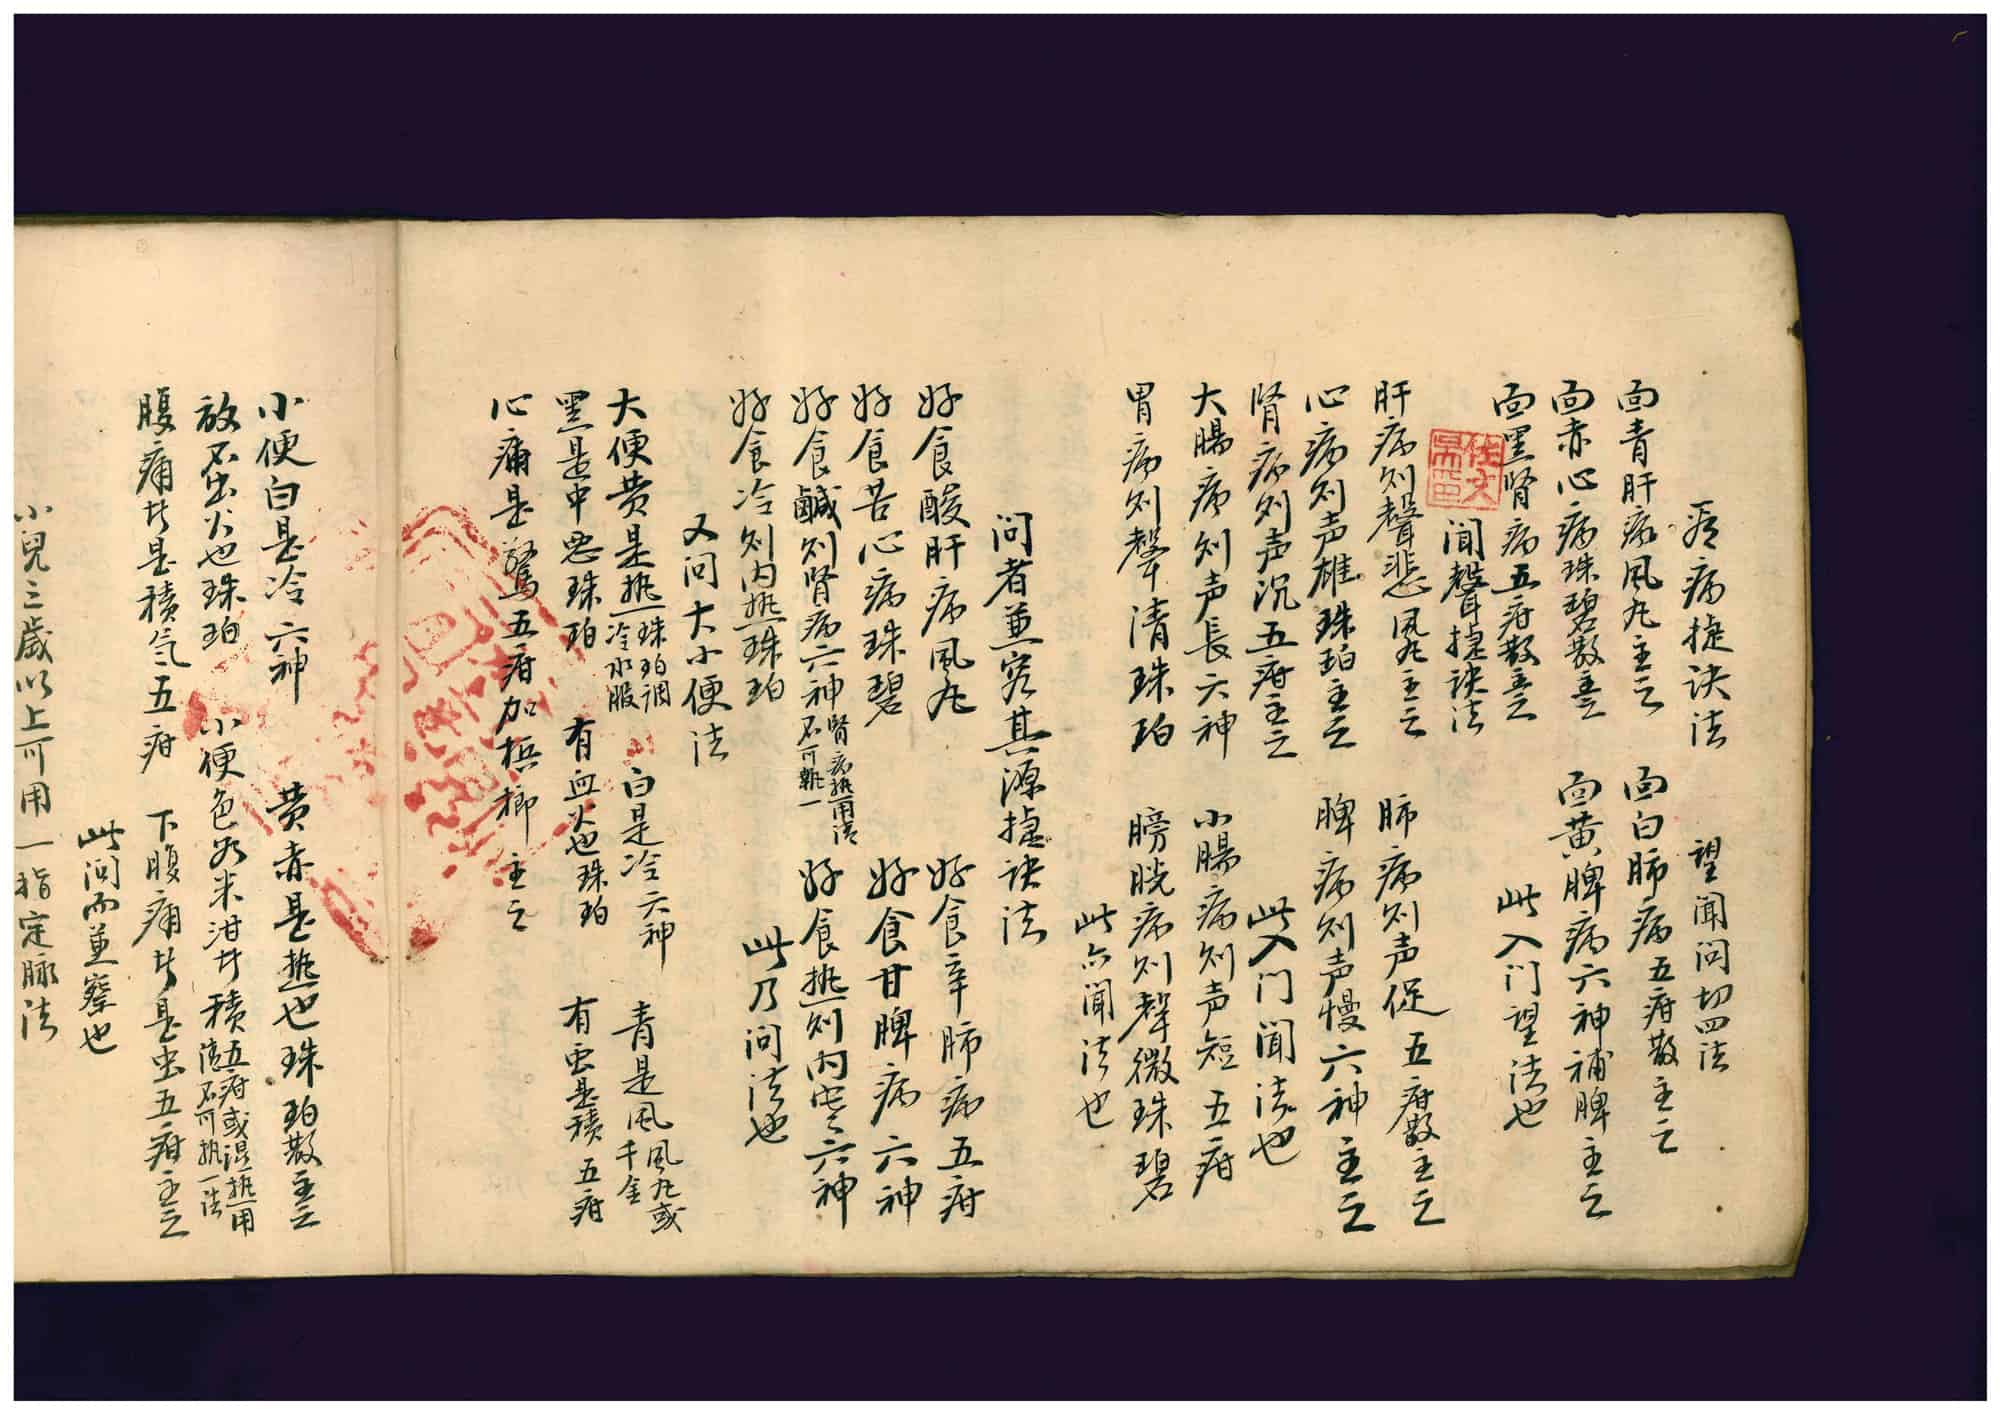 看病捷訣法　望聞問切四法
面青肝病風丸主之　面白肺病五疳散主之
面赤心病珠碧散主之　面黄脾病六神補脾主之
面黑腎病五疳散主之　此入门望法也
聞聲捷訣法
肝病则聲悲風丸主之　肺病则声促五疳散主之
心病则声雄珠珀主之　脾病则声慢六神主之
腎病则声沉五疳主之　此入门聞法也
大腸病则声長六神　小腸病则声短五疳
胃病则聲清珠珀　膀胱病则聲微珠碧
此亦聞法也
问者並察其源捷訣法
好食酸肝病風丸　好食辛肺病五疳
好食苦心病珠碧　好食甘脾病六神
好食鹹则腎病六神腎病热用法不可執一　好食热则内寒六神
好食冷则内热珠珀　此乃问法也
又问大小便法
大便黄是热珠珀调冷水服　白是冷六神　青是風風丸或千金
黑是中恶珠珀　有血火也珠珀　有虫是積五疳
心痛是驚五疳加梹榔主之
小便白是冷六神　黄赤是热也珠珀散主之
放不出火也珠珀　小便色如米泔廿積五疳或混热用法不可执一法
腹痛廿是積气五疳　下腹痛廿是虫五疳主之
此问而並察也
小兒三歲以上可用一指定脉法
佐文